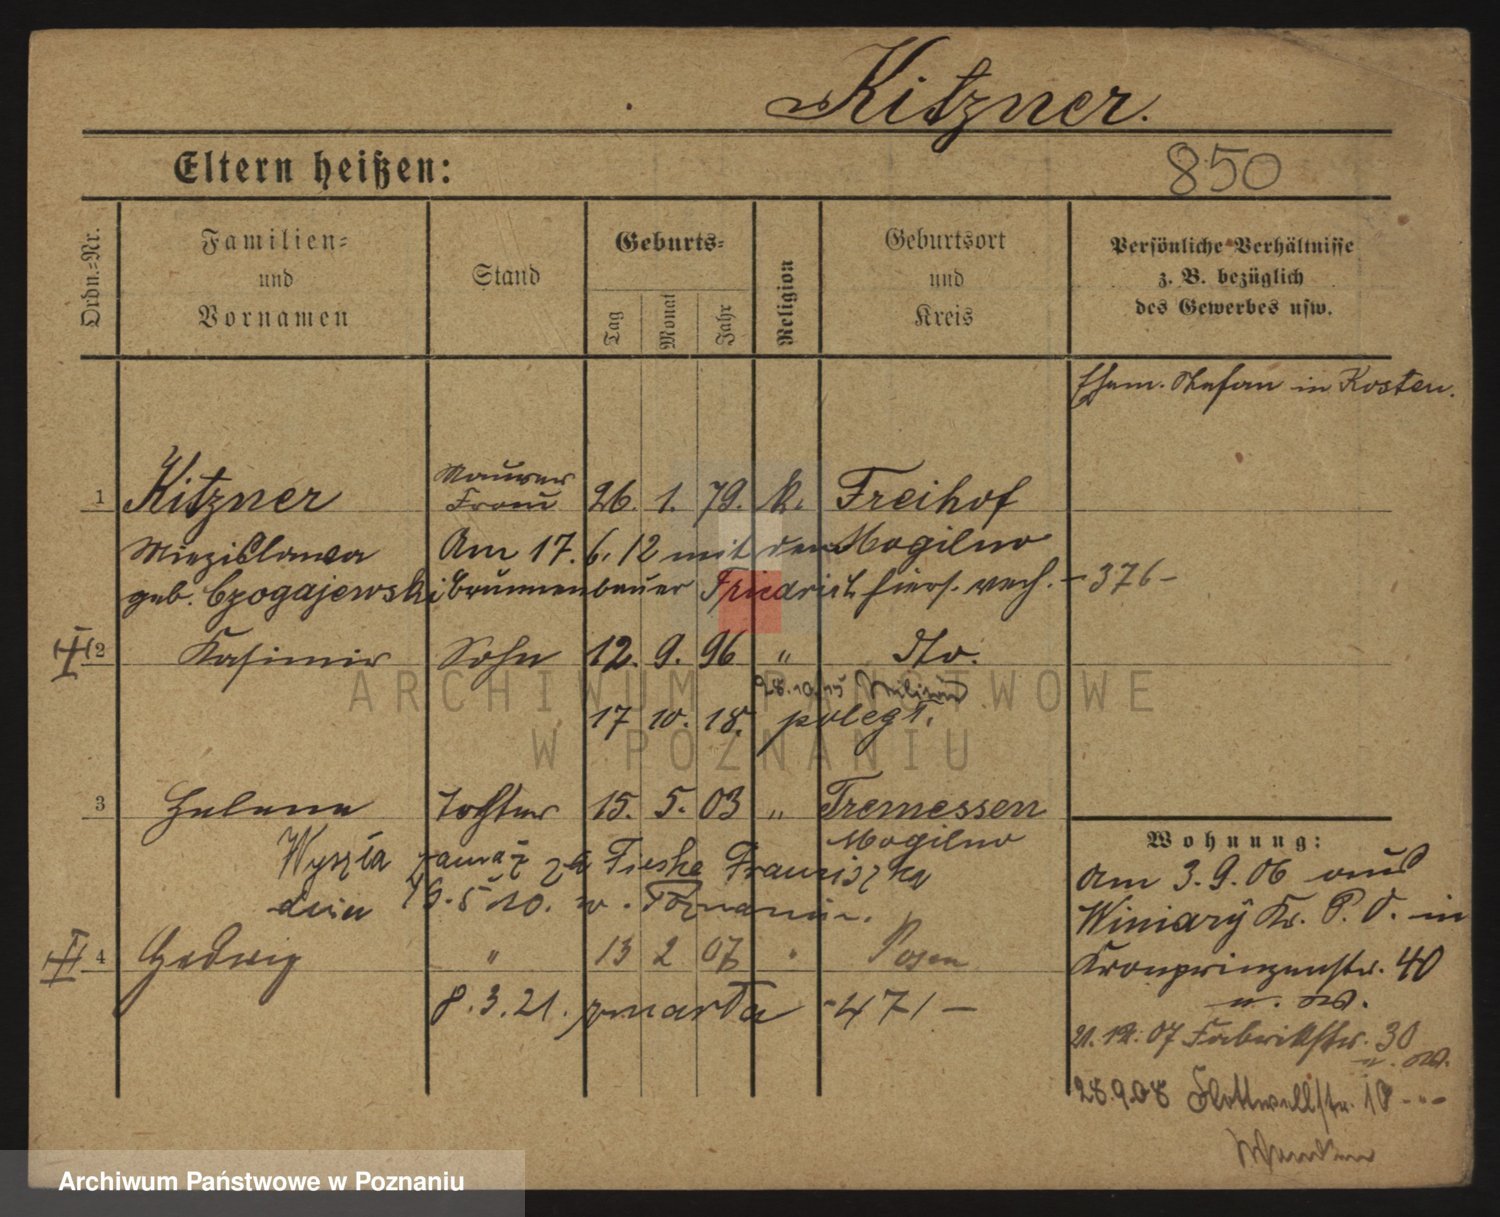 Kitzner.
Eltern heißen:
850
Ordn.-Nr.
Familien-
und
Vornamen
Stand
Geburts-
Tag
Monat
Jahr
Religion
Geburtsort
und
Kreis
Persönliche Verhältnisse
z. B. bezüglich
des Gewerbes usw.
Ehem. Stefan in Kosten.
Maurer
1 Kitzner Frau 26. 1. 79. k. Freihof
Miezislawa Am 17. 6. 12 mit dem Mogilno
geb. Czogajewski Brunnenbauer Friedrich hiers. verh. - 376 -
I 2 Kasimir Sohn 12. 9. 96 " Do.
28.10.15 Militär
17 10. 18. poległ.
3 Helene Tochter 15. 5. 03 " Tremessen
Mogilno
Wyszła zamąż za Franciszka
dnia 19. 5 w Poznaniu.
II 4 Hedwig " 13 2 07 " Posen
8. 3. 21. zmarła - 471 -
Wohnung:
Am 3. 9. 06 aus
Winiary Kr. P. O. in
Kronprinzenstr. 40
u. w.
21. 12. 07 Fabrikstr. 30
u. w.
28.9.08 Flottwellstr. 10
ARCHIWUM PAŃSTWOWE
W POZNANIU
Archiwum Państwowe w Poznaniu